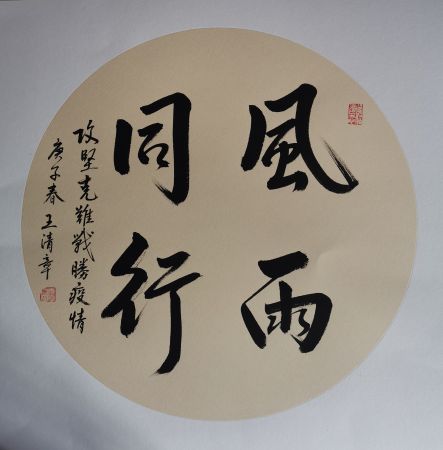 風雨
同行
攻堅克難戰勝疫情
庚子春王清章